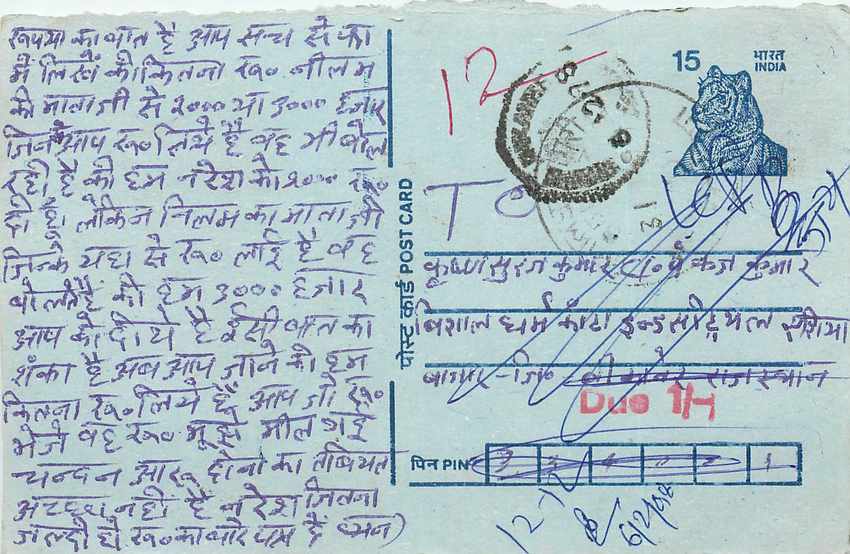 रूपया का बात है आप सच्च से फो
में लिखें की कितना रू० नीलम
की माताजी से २००० या ३००० हजार
जिन आप रू० लिये हैं वह भी बोल
रही है की हम नरेश को २००० रू०
दी हूँ। लेकिन निलम का माता जी
जिनके यहा से रू० लाई है वह
बोलते है की हम ३००० हजार
आप को दीये है ईसी बात का
शंका है अब आप जाने की हम
कितना रू० लिये है आप जो रू०
भेजे वह रू० मूझे मील गई
चन्दन आरू दोनो का तबियत
नही है नरेश जितना
जल्दी हो रू० का
12
15
भारत
INDIA
पोस्ट कार्ड POST CARD
TO
कृष्णा सुरज कुमार C/० पंकज कुमार
विशाल धर्म कांटा इन्डसीट्रयल एरिया
जि० बीकानेर राजस्थान
Due 1/-
पिन PIN
12-12
6/2/98